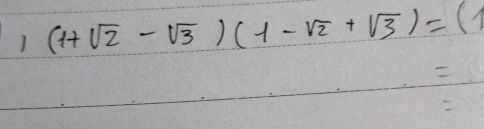 ) (1+√2 - √3)(1 - √2 + √3) = (1
=
=